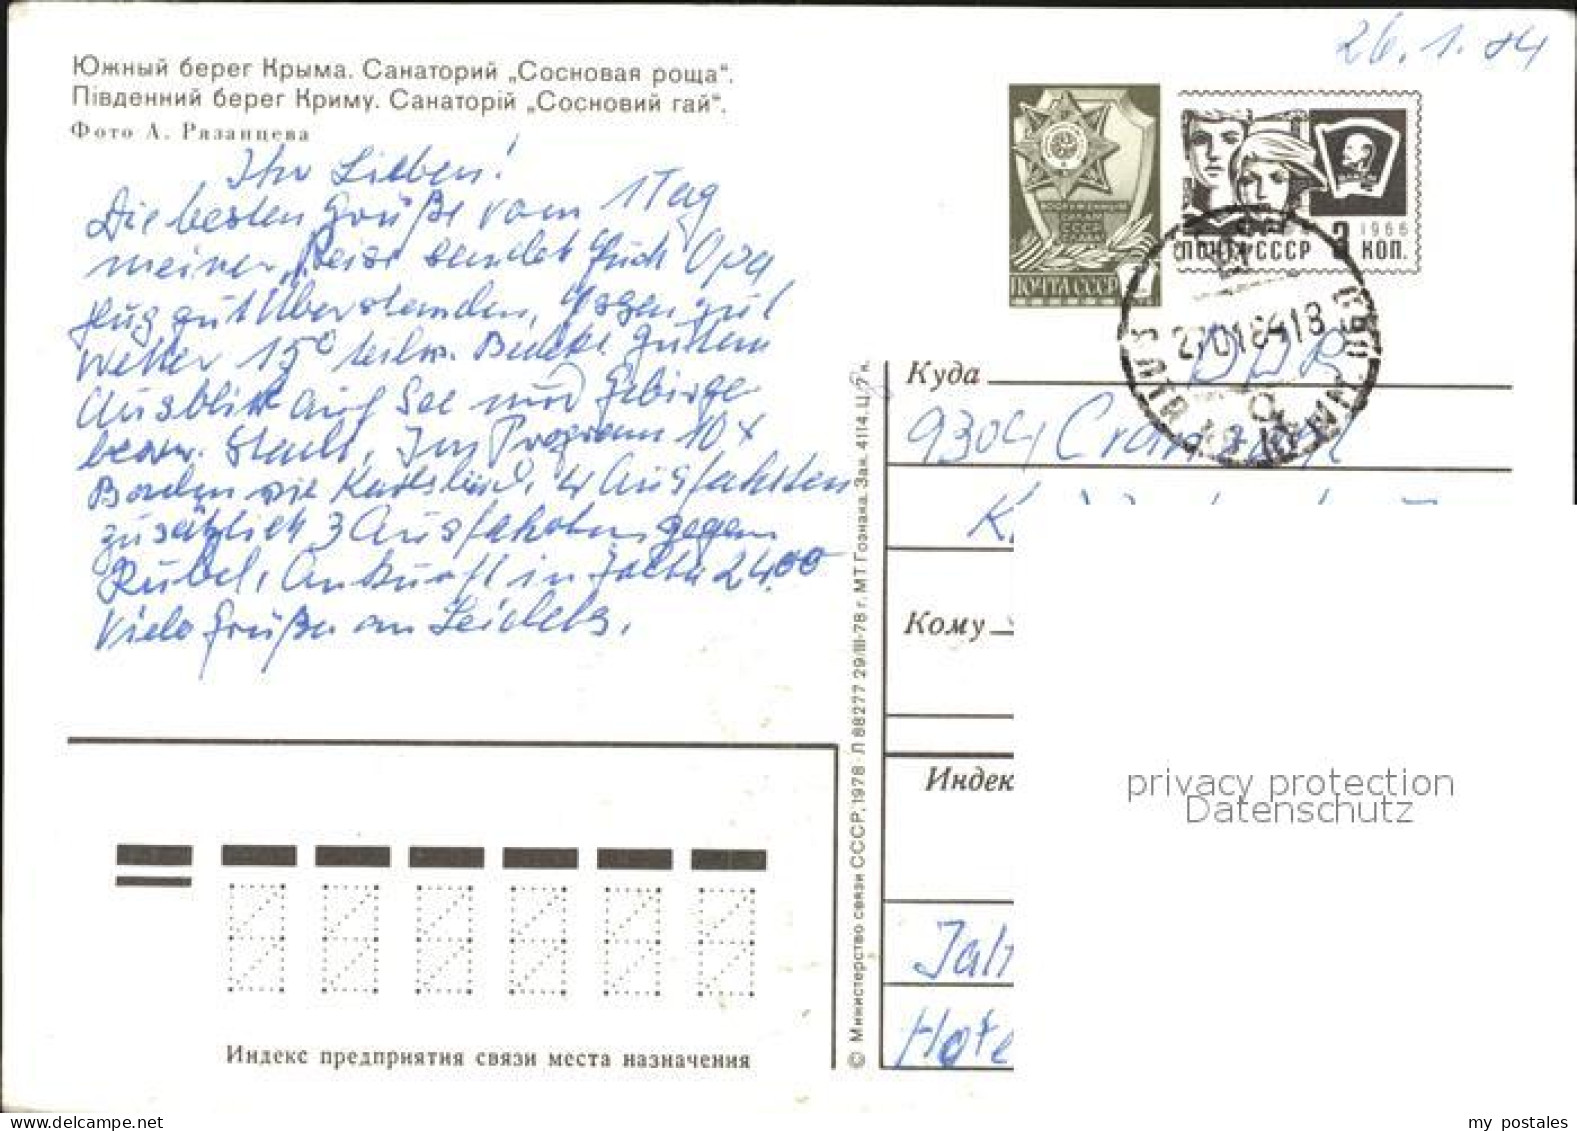 26.1.84
Южный берег Крыма. Санаторий „Сосновая роща“.
Південний берег Криму. Санаторій „Сосновий гай“.
Фото А. Рязанцева
Ihr Lieben!
Die besten Grüße vom 1 Tag
meiner Reise sendet Euch Opa
Flug gut Überstanden, Essen gut
Wetter 15° teilw. Gutem
Ausblick auf See und Gebirge
bezw. Stadt, Im Programm 10 x
Baden 4 Ausfahrten
zusätzlich 3 Ausfahrten gegen
Rubel, Ankunft in Jalta 24.00
Viele Grüße an
ВООРУЖЕННЫМ
СИЛАМ
СССР
ПОЧТА СССР
ПОЧТА СССР
1966
3 КОП.
Куда
DDR
9304
Кому
Индек
Jalt
Hote
© Министерство связи СССР, 1978 · Л 88277 29/III-78 г. МТ Гознака. Зак. 4114. Ц. 7 к.
Индекс предприятия связи места назначения
privacy protection
Datenschutz
my postales